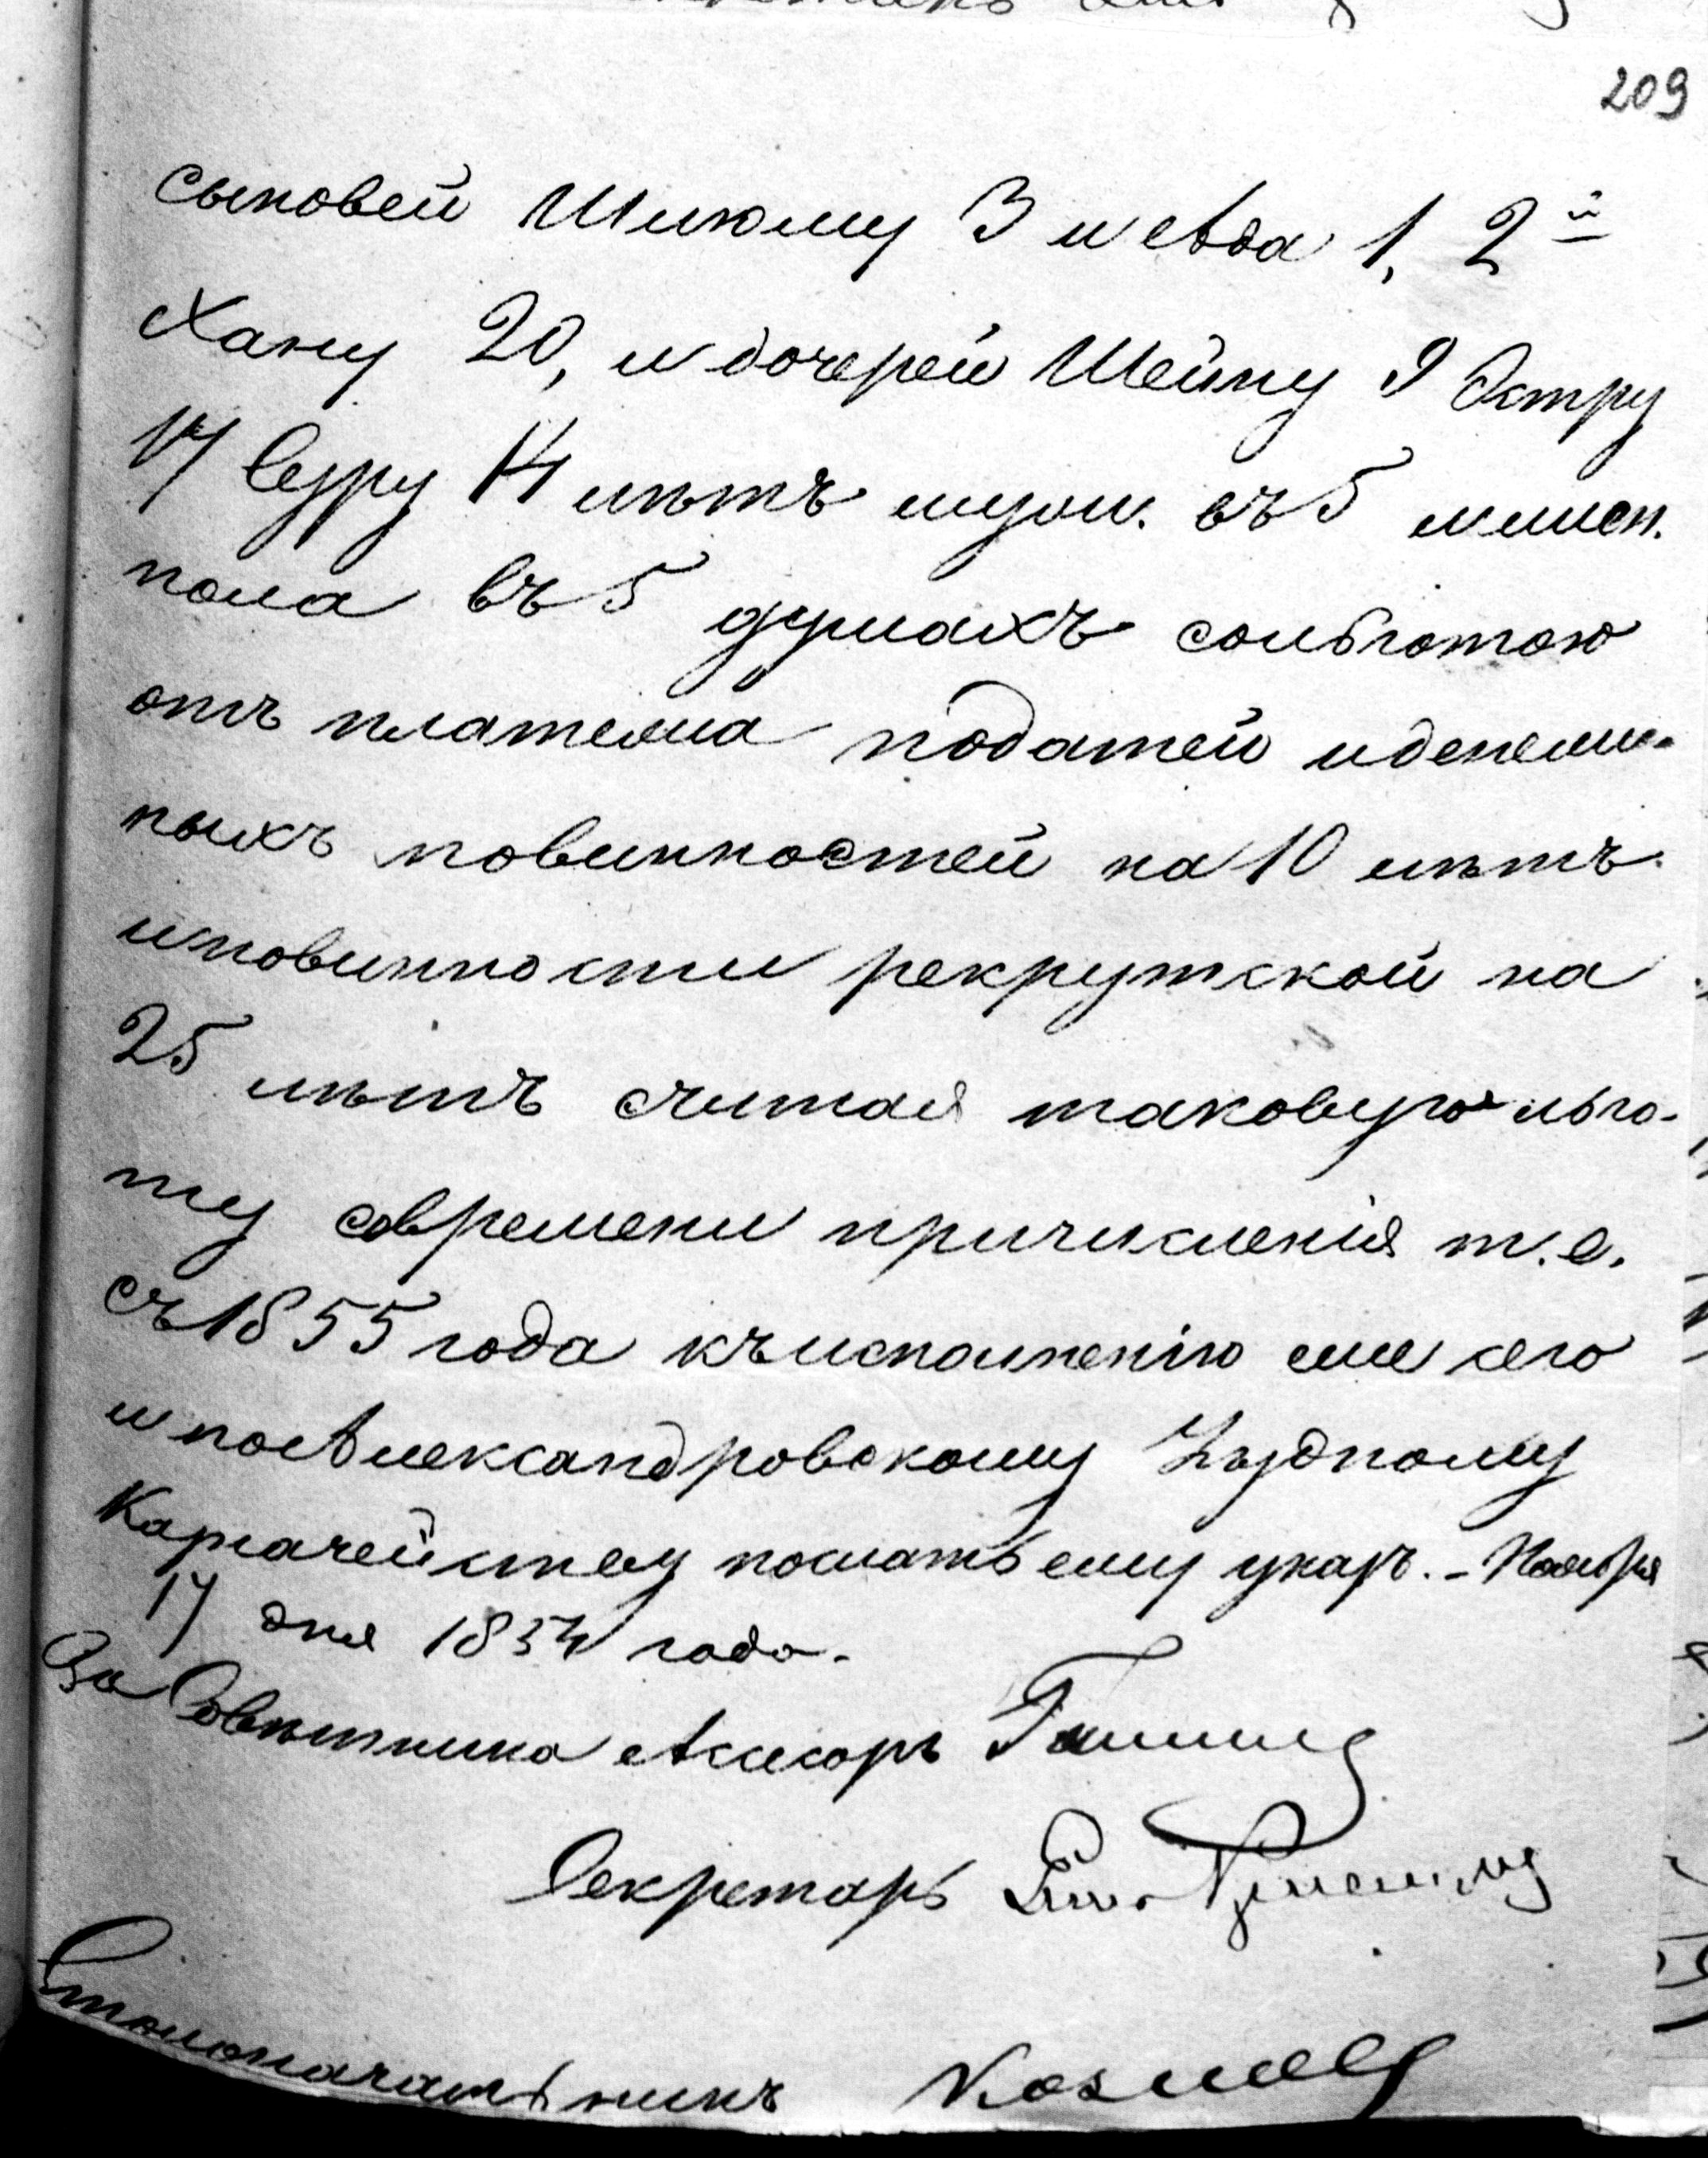 209
сыновей Шлюму 3 и Авва 1, 2й
Хану 20, и дочерей Шейну 9 Эстру
17 Суру 14 лѣтъ мужи. въ 5 и женс.
пола въ 5 душахъ сольготою
отъ платежа податей иденеж-
ныхъ повинностей на 10 лѣтъ
иповинности рекрутской на
25 лѣтъ считая таковую льго-
ту современи причисленія т.е.
съ 1855 года къисполненію чего
и поАлександровскому Уѣздному
Казначейству послать ему указъ. - Ноября
17 дня 1854 года.
За Совѣтника Асессоръ
Секретарь
Столоначальникъ